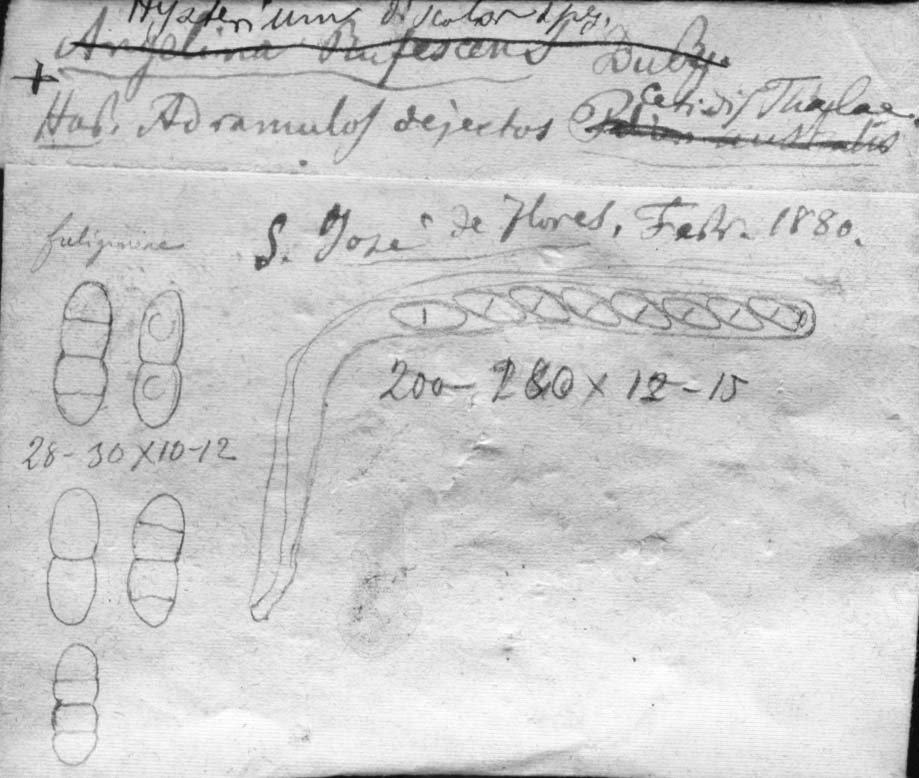 Hysterium discolor Speg.
Angelina Rufescens Duby
+
Celtidis Thalae.
Hab. Ad ramulos dejectos australis
S. José de Flores, Febr. 1880.
fuligineae
200-280 x 12-15
28-30 x 10-12